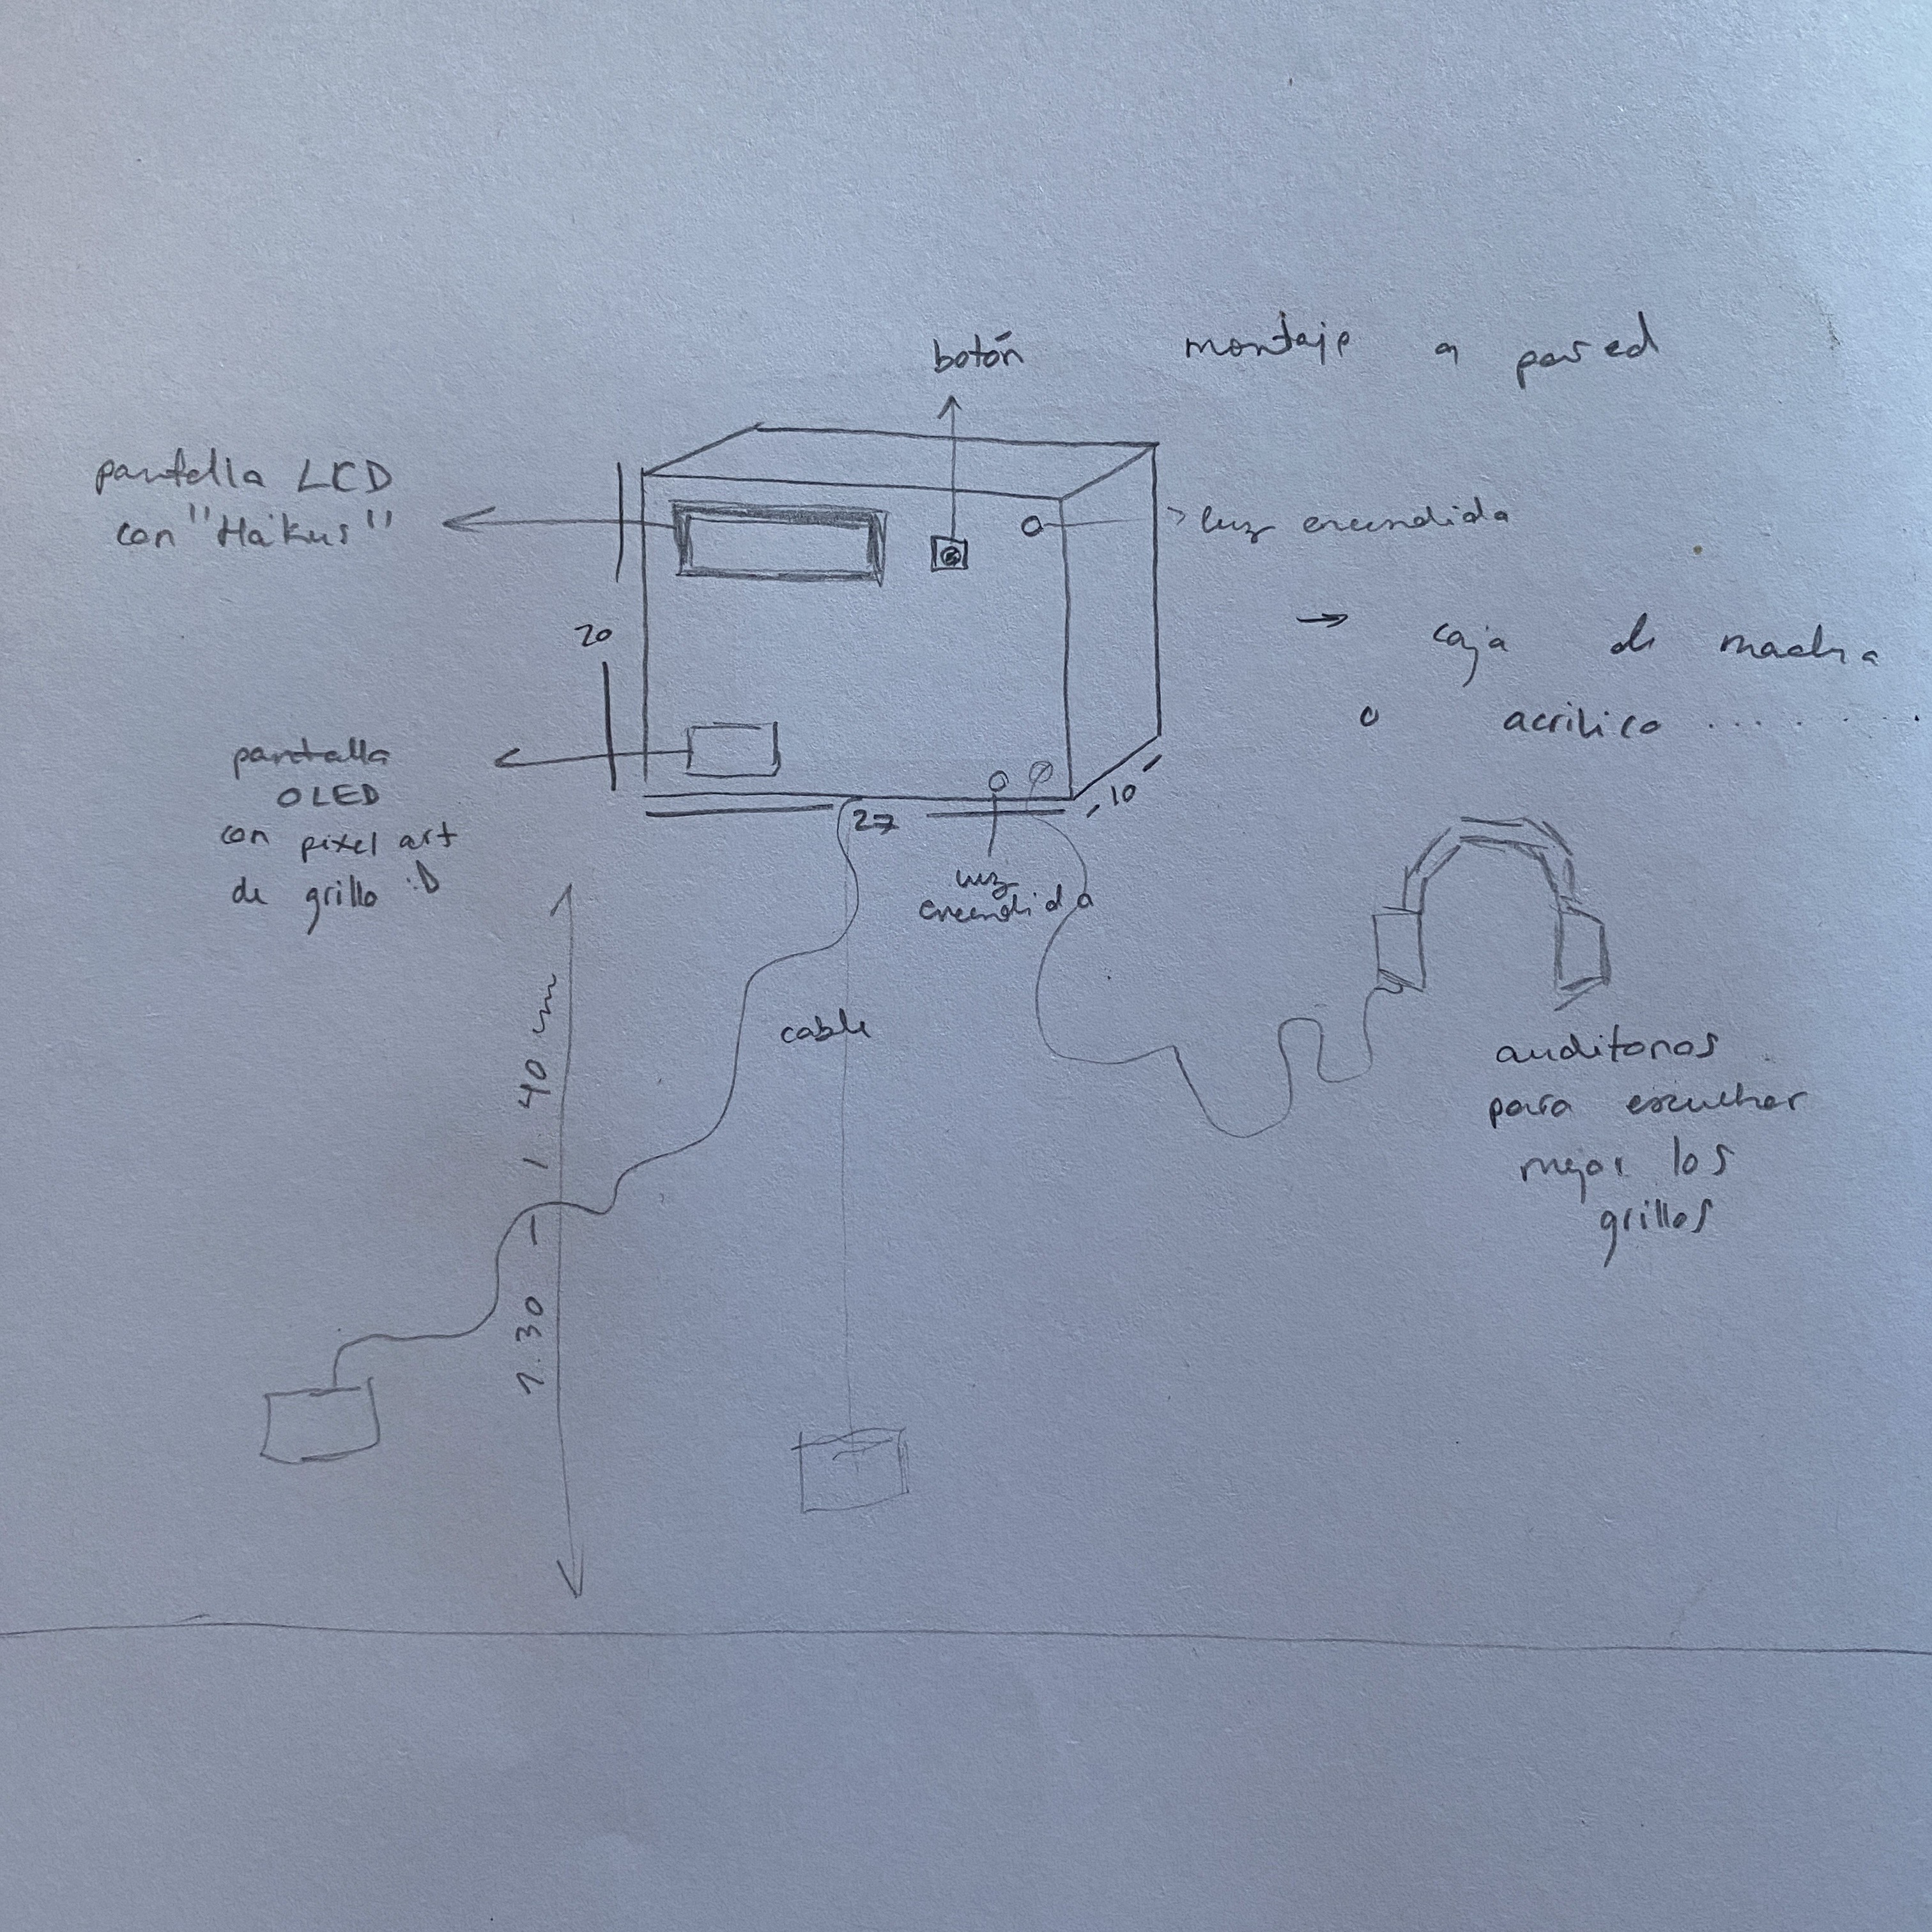 botón
montaje a pared
pantalla LCD
con "Haikus"
luz encendida
20
→ caja de madera
o acrilico ........
pantalla
OLED
con pixel art
de grillo :D
27
10
luz
encendida
1.30 - 1.40 m
cable
auditonos
para escuchar
mejor los
grillos